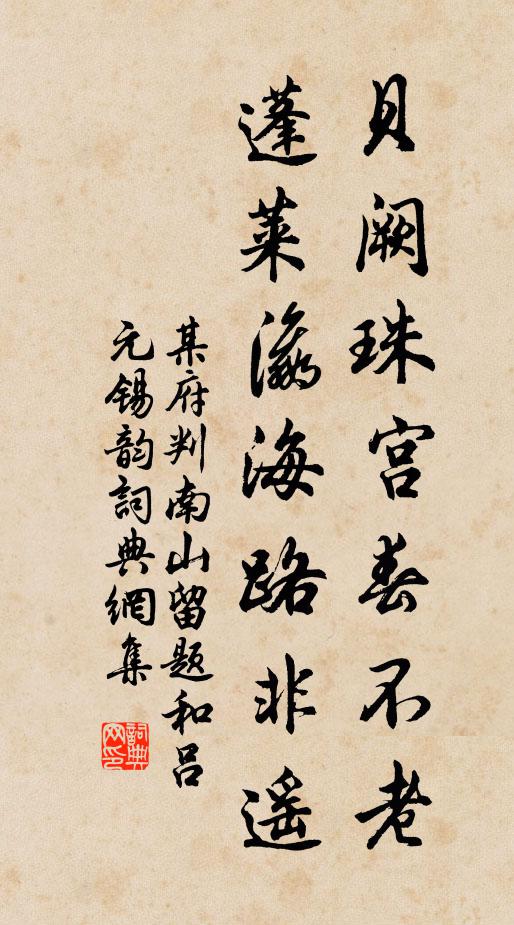 貝阙珠宫春不老
蓬莱瀛海路非遥
某府判南山留题和吕
元锡韵詞典網集
詞典
网印